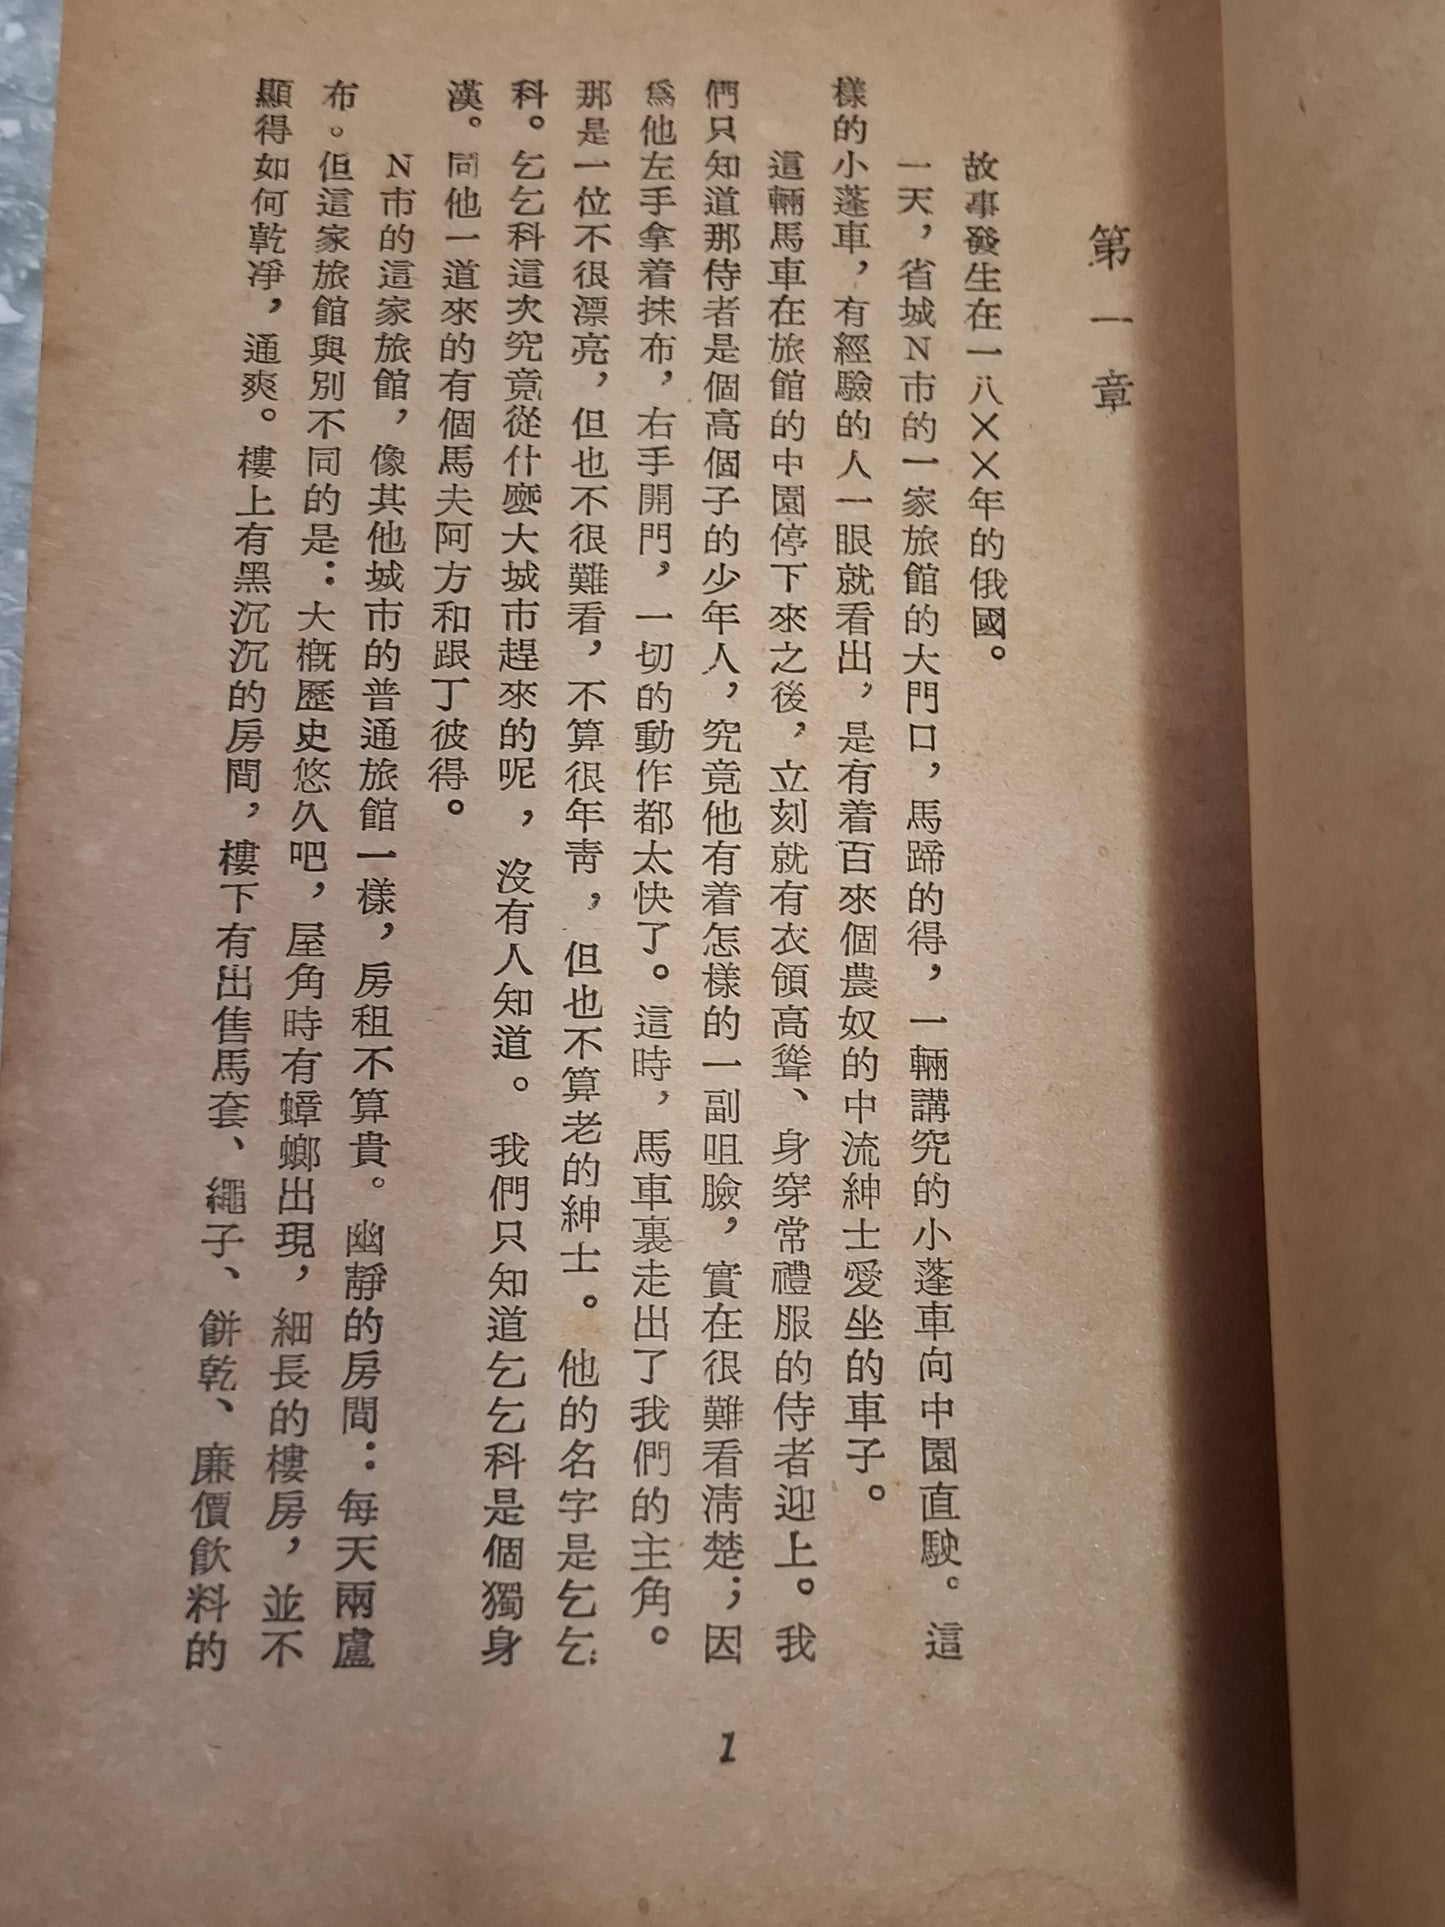 第一章
故事發生在一八××年的俄國。
一天，省城N市的一家旅館的大門口，馬蹄的得，一輛講究的小蓬車向中園直駛。這
樣的小蓬車，有經驗的人一眼就看出，是有着百來個農奴的中流紳士愛坐的車子。
這輛馬車在旅館的中園停下來之後，立刻就有衣領高聳、身穿常禮服的侍者迎上。我
們只知道那侍者是個高個子的少年人，究竟他有着怎樣的一副咀臉，實在很難看清楚；因
爲他左手拿着抹布，右手開門，一切的動作都太快了。這時，馬車裏走出了我們的主角。
那是一位不很漂亮，但也不很難看，不算很年靑，但也不算老的紳士。他的名字是乞乞
科。乞乞科這次究竟從什麼大城市趕來的呢，沒有人知道。我們只知道乞乞科是個獨身
漢。同他一道來的有個馬夫阿方和跟丁彼得。
N市的這家旅館，像其他城市的普通旅館一樣，房租不算貴。幽靜的房間：每天兩盧
布。但這家旅館與別不同的是：大概歷史悠久吧，屋角時有蟑螂出現，細長的樓房，並不
顯得如何乾凈，通爽。樓上有黑沉沉的房間，樓下有出售馬套、繩子、餅乾、廉價飲料的
1